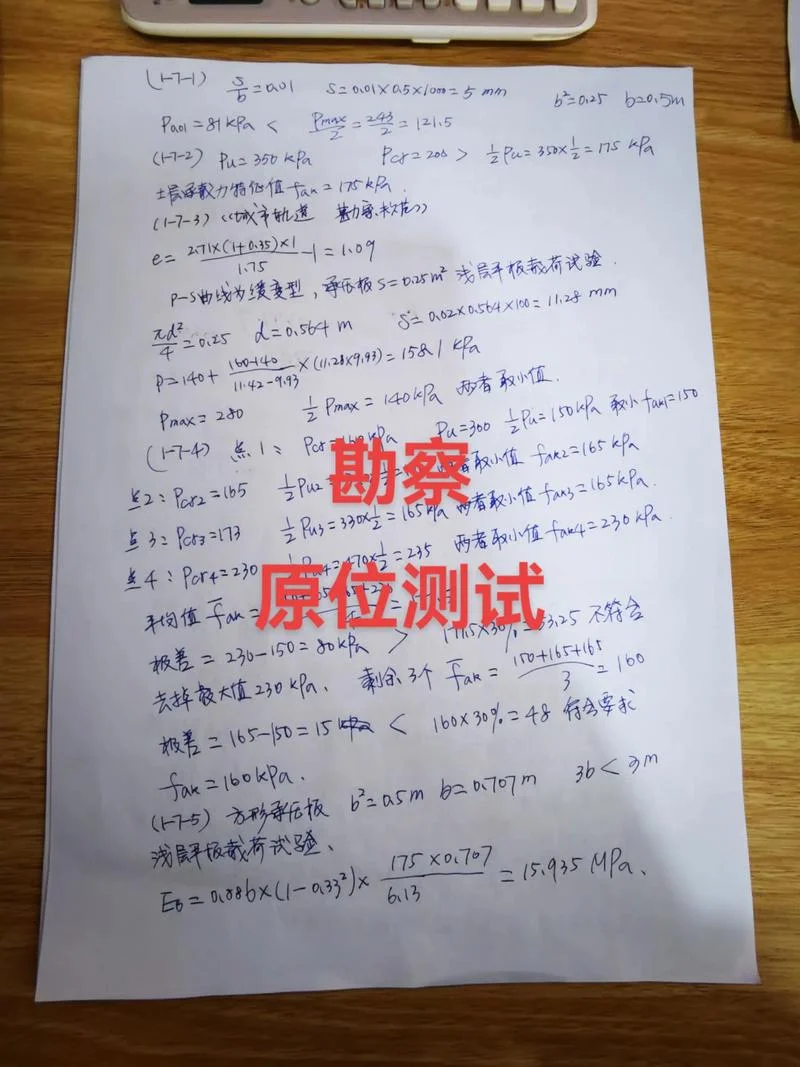 (1-7-1) s/b=0.01 s=0.01×0.5×1000=5 mm b²=0.25 b=0.5m
P0.01=81kPa < Pmax/2=243/2=121.5
(1-7-2) Pu=350kPa Pcr=200 > ½Pu=350×½=175 kPa
土层承载力特征值fak=175kPa.
(1-7-3)《城市轨道 勘察规范》
e=2.71×(1+0.35)×1/1.75-1=1.09
P-S曲线为缓变型,承压板S=0.25m²浅层平板载荷试验.
πd²/4=0.25 d=0.564m s=0.02×0.564×100=11.28 mm
P=140+160-140/11.42-9.93×(11.28×9.93)=158.1 kPa
Pmax=280 ½Pmax=140kPa 两者取小值.
(1-7-4) 点1: Pcr=160kPa Pu=300 ½Pu=150kPa 取小fak1=150
点2:Pcr2=165 ½Pu2= 两者取小值 fak2=165kPa
点3:Pcr3=173 ½Pu3=330×½=165kPa 两者取小值fak3=165kPa.
点4:Pcr4=230 ½Pu4=470×½=235 两者取小值fak4=230kPa.
勘察
原位测试
平均值 fak=
极差=230-150=80kPa > 177.5×30%=53.25 不符合
去掉最大值230kPa. 剩余3个 fak=150+165+165/3=160
极差=165-150=15 < 160×30%=48 符合要求
fak=160kPa.
(1-7-5) 方形承压板 b²=0.5m b=0.707m 3b<3m
浅层平板载荷试验、
E0=0.886×(1-0.33²)×175×0.707/6.13=15.935 MPa、